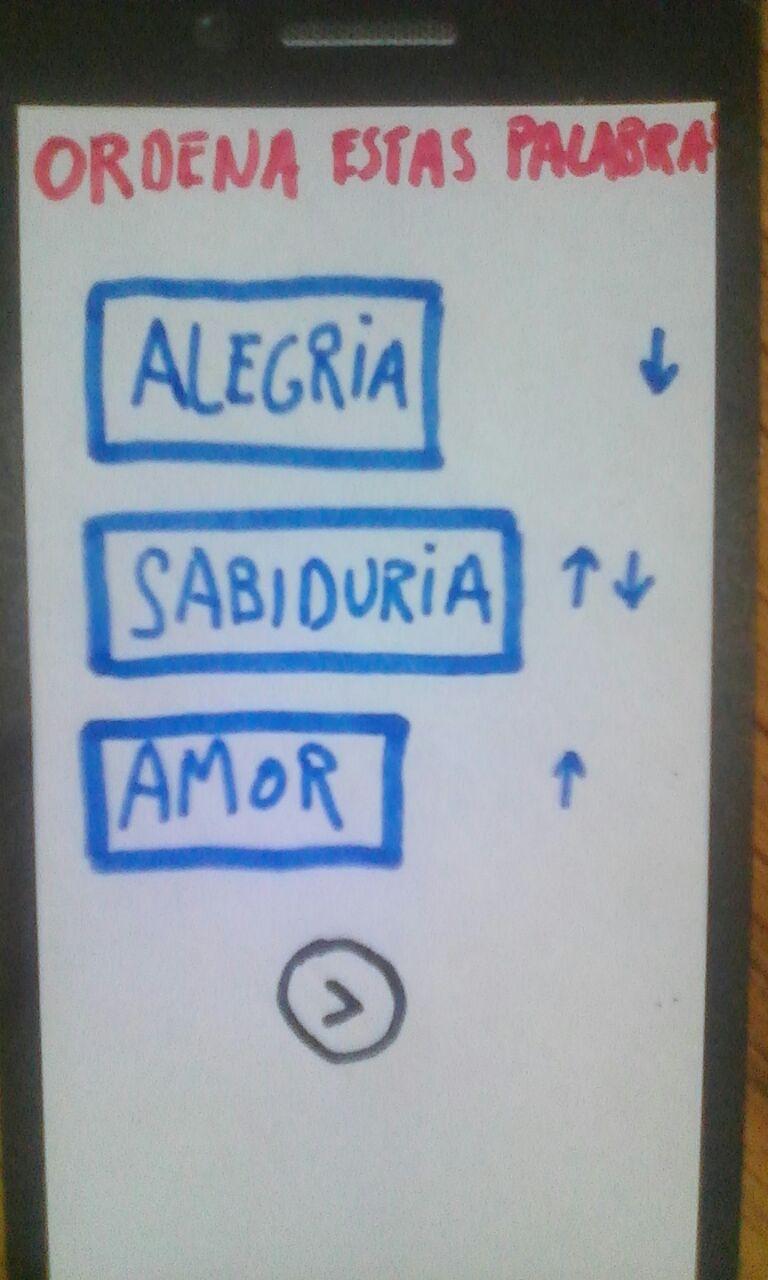 ORDENA ESTAS PALABRAS
ALEGRiA ↓
SABIDURiA ↑↓
AMOR ↑
>